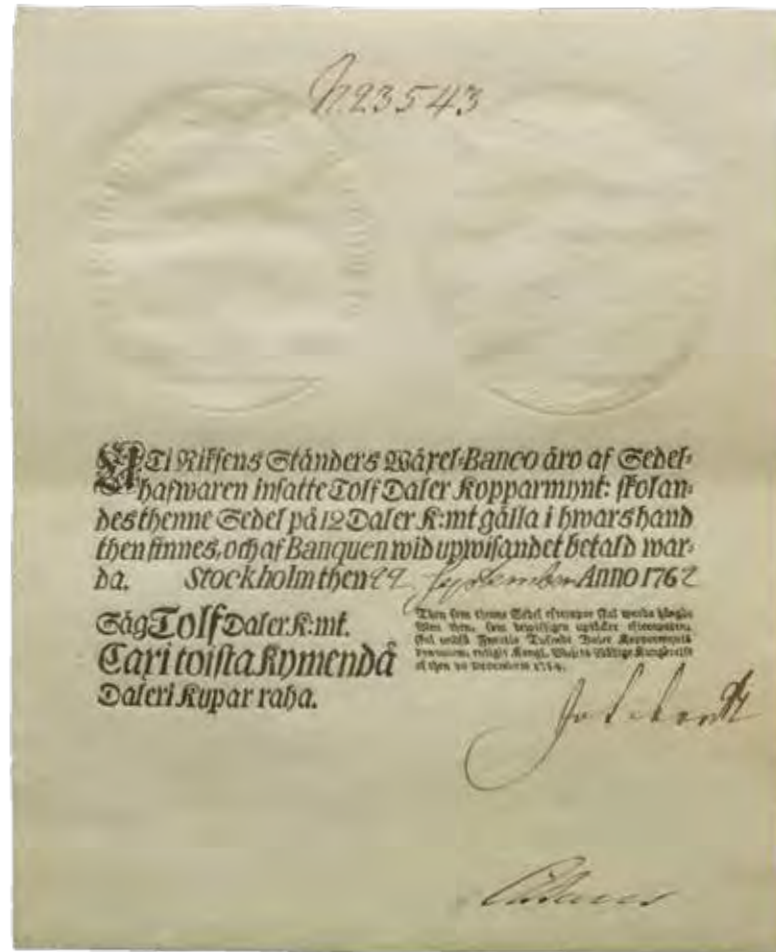 N. 23543
ATi Riksens Ständers Wäxel-Banco äro af Sedel-
hafwaren insatte Tolf Daler Kopparmynt: skolan-
des thenne Sedel på 12 Daler K:mt gälla i hwars hand
then finnes, och af Banquen wid upwisandet betald war-
da. Stockholm then 22 September Anno 1762
Säg Tolf Daler K:mt.
Caxi toista kymendå
Daleri Kupar raha.
Then som thenne Sedel efterapar skal warda hängd;
Men then, som bewisligen uptäcker efteraparen,
skal undfå Daler Kopparmynts
Kongl.
af then December